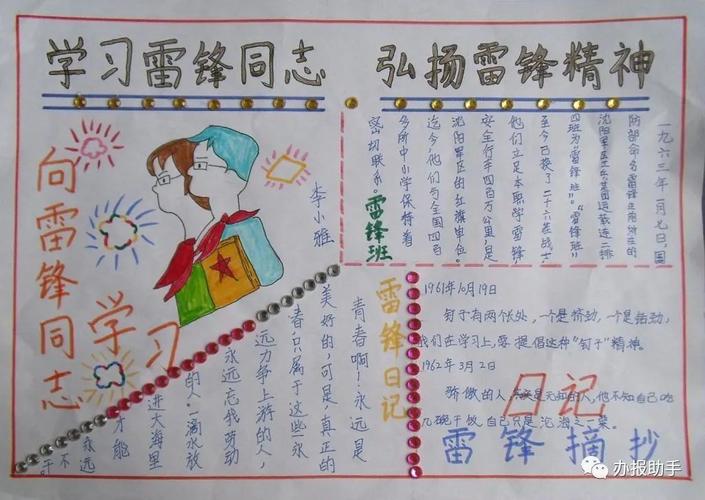 学习雷锋同志 弘扬雷锋精神
向雷锋同志
学习
李小雅
一九六三年一月七日，国
防部命名雷锋生前所在的
沈阳军区工兵某团运输连二排
四班为"雷锋班"。"雷锋班"
至今已换了二十六茬战士
他们立足本职学雷锋
安全行车四百万公里，是
沈阳军区的红旗单位。
迄今，他们与全国四百
多所中小学保持着
密切联系。
雷锋班
青春啊！永远是
美好的，可是，真正的
春只属于这些永
远力争上游的人，
永远忘我劳动
的人。一滴水放
进大海里
才能
永远
不
干
雷锋日记
1961年10月19日
钉子有两个长处，一个是挤劲，一个是钻劲，
我们在学习上，要提倡这种"钉子"精神。
1962年3月2日
骄傲的人，其实是无知的人，他不知自己吃
几碗干饭，自己只是沧海之一粟。
日记
雷锋摘抄
办报助手